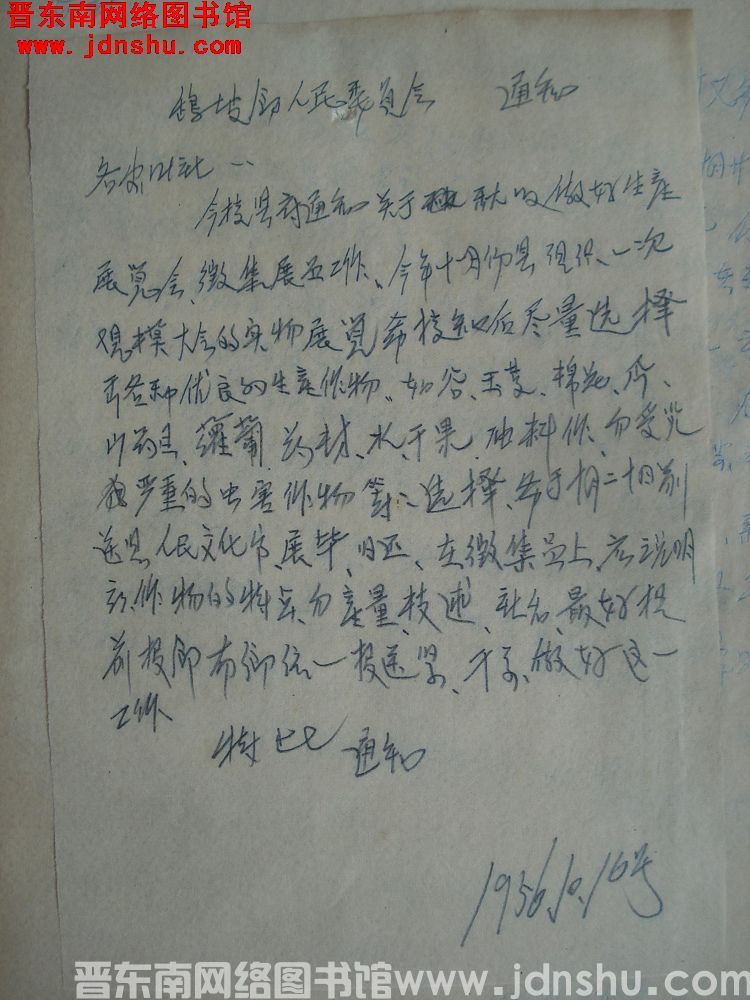 晋东南网络图书馆
www.jdnshu.com
坡乡人民委员会 通知
各农业社：
今接县府通知关于秋收做好生产
展览会、徵集展品工作、今年十月份县组织一次
规模大会的实物展览希接知后尽量选择
各种优良的生产作物、如谷、玉茭、棉花、
山药旦、蘿蔔、药材、水、干果、油料作、
严重的虫害作物等、选择、希于
人民文化、展毕、归还、在徵集品上、应说明
该作物的特点、产量、技术、社名、最好提
前报乡统一报送县、做好这一
工作
特此 通知
1956.10.16号
晋东南网络图书馆www.jdnshu.com